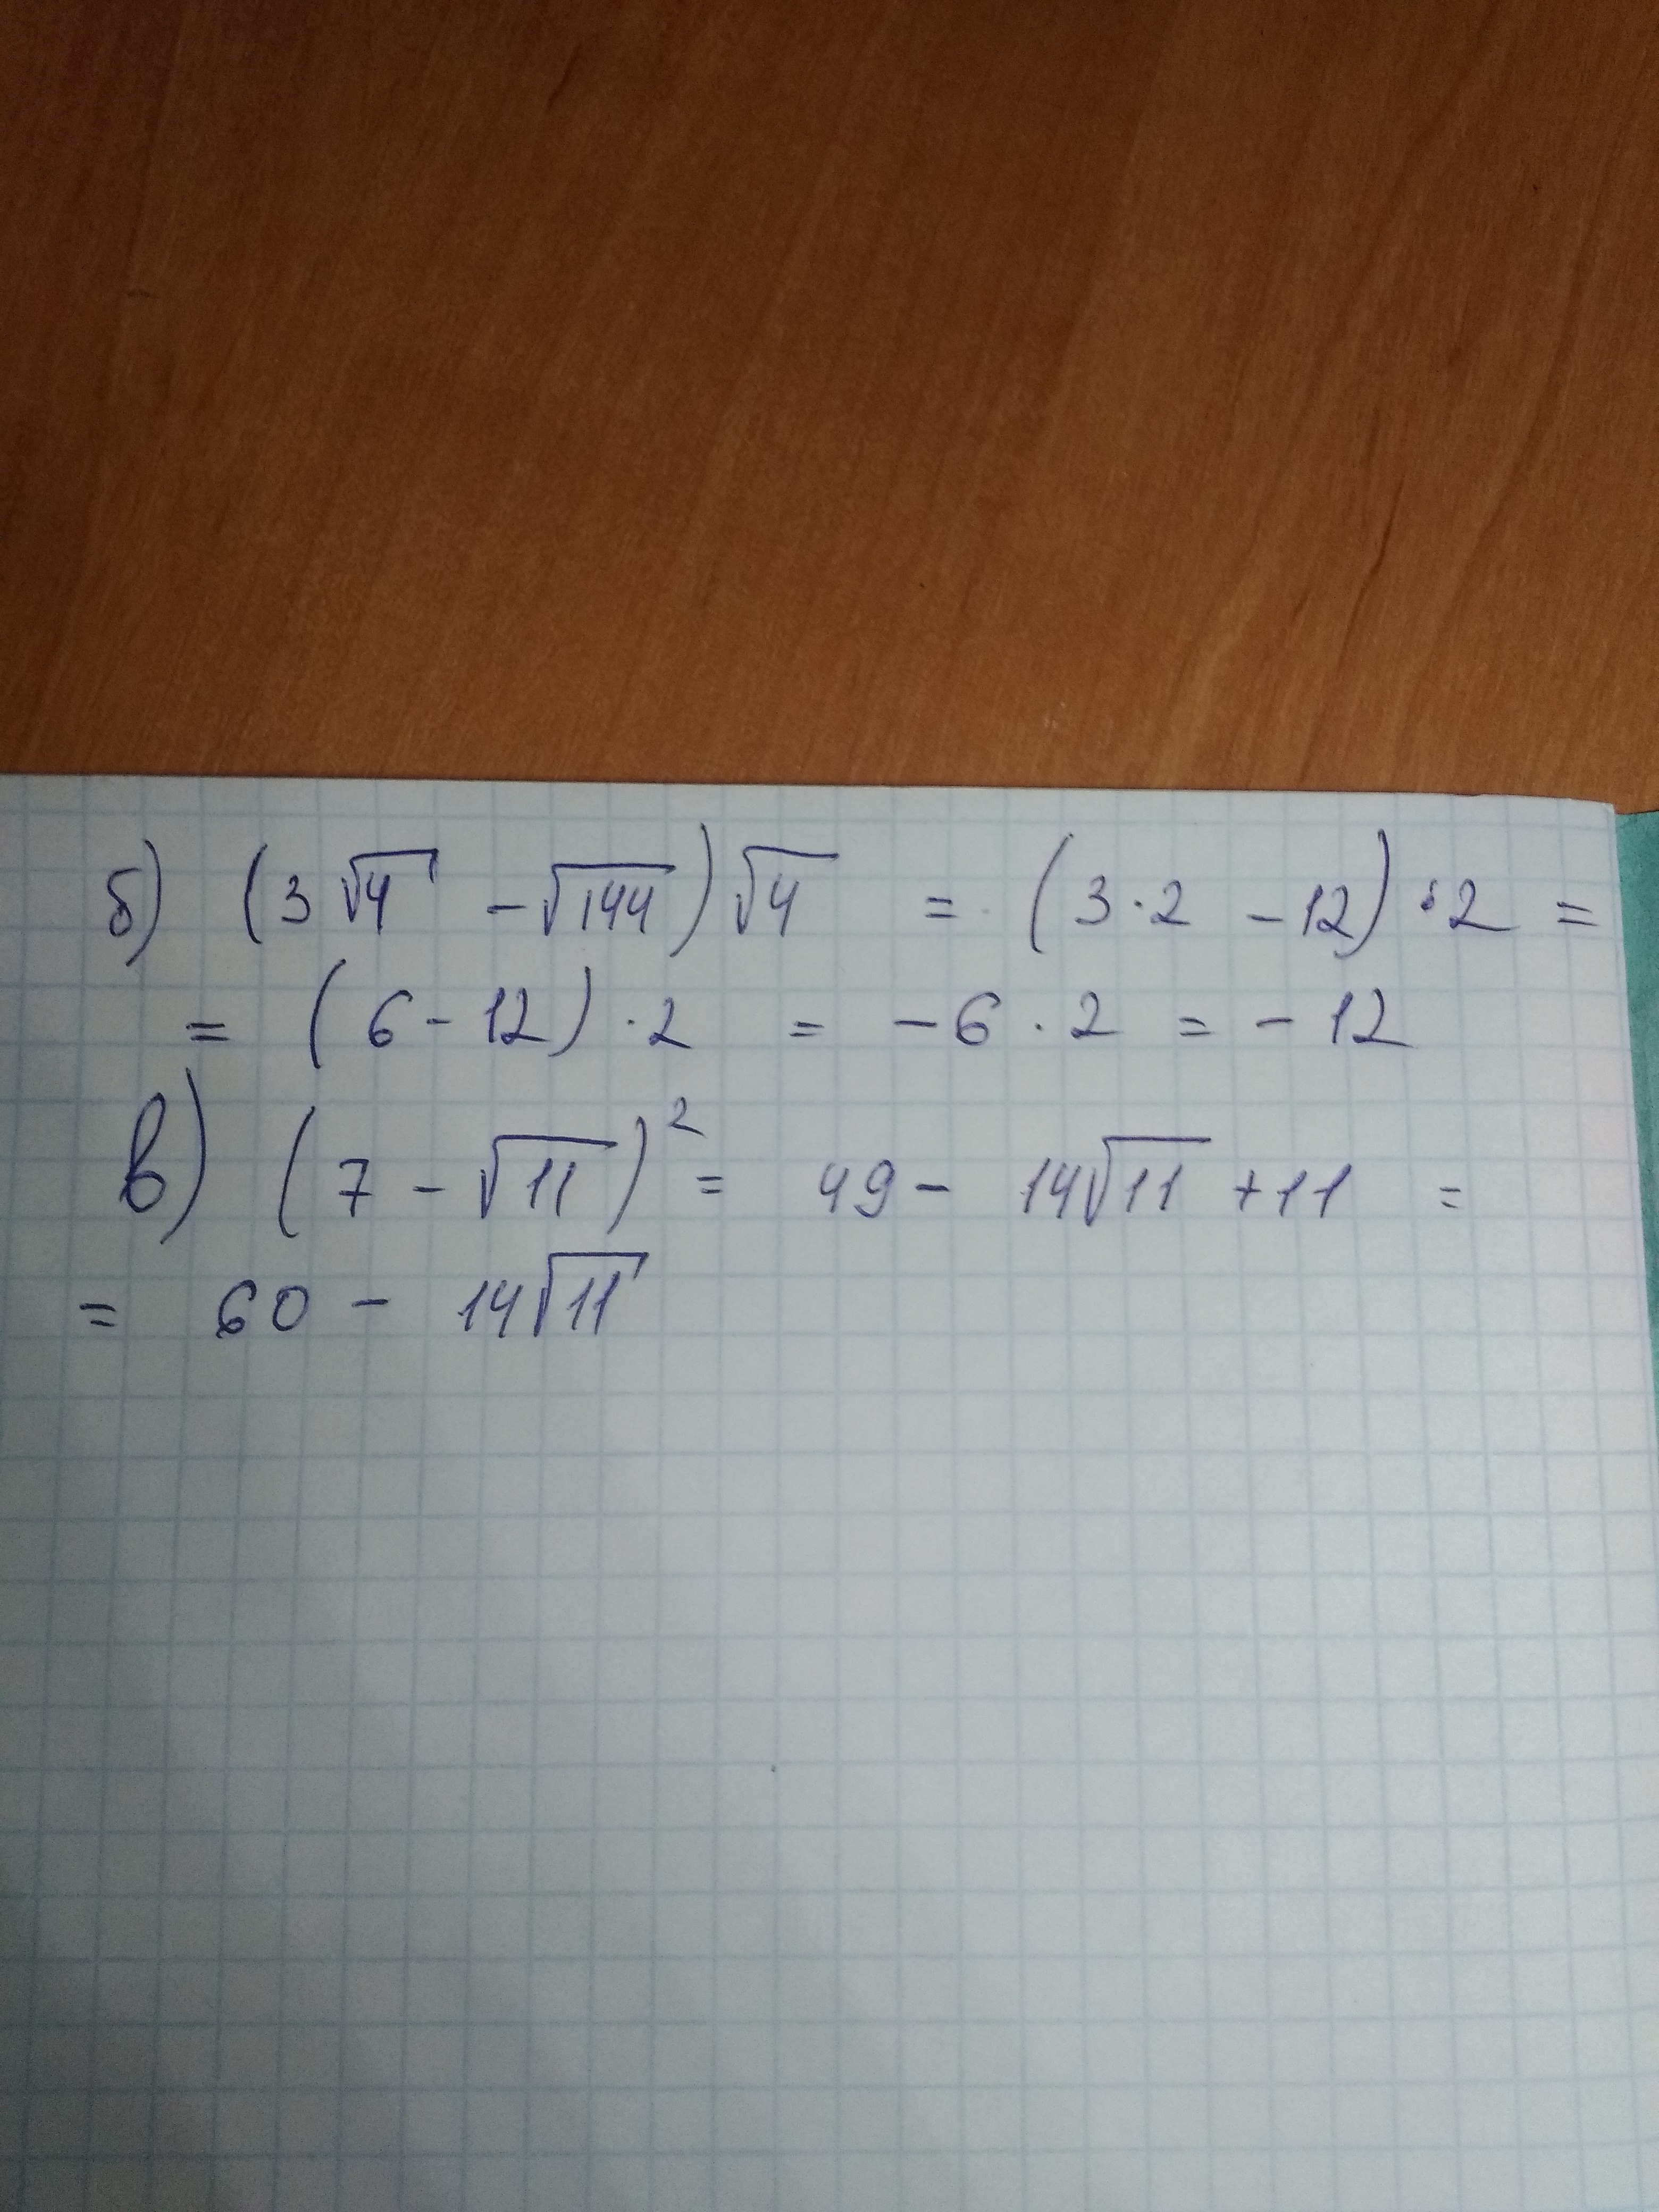 б) (3√4 - √144)√4 = (3·2 - 12)·2 =
= (6 - 12)·2 = -6·2 = -12
в) (7 - √11)² = 49 - 14√11 + 11 =
= 60 - 14√11